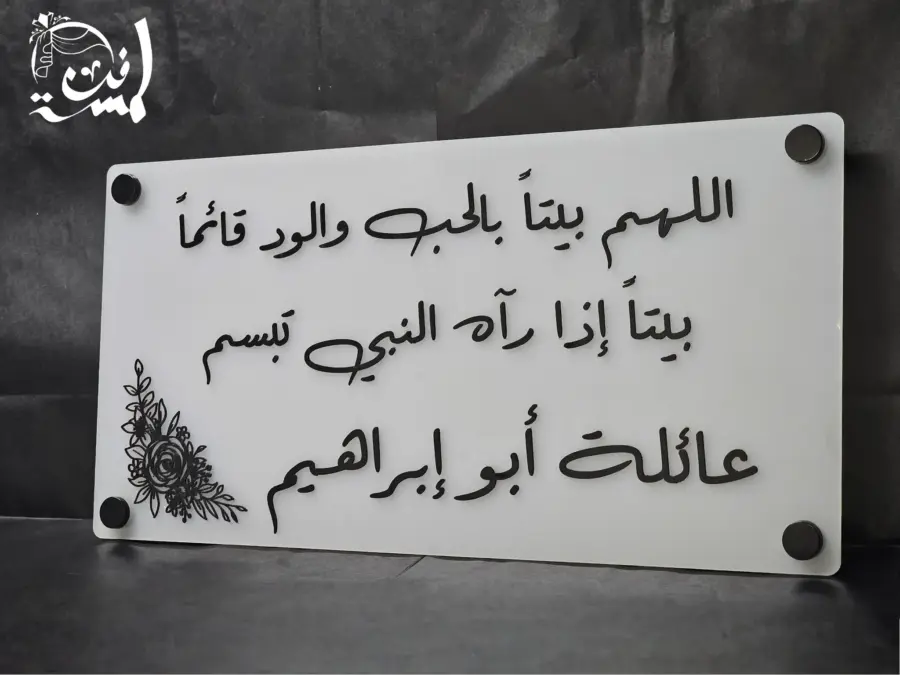 اللهم بيتاً بالحب والود قائماً
بيتاً إذا رآه النبي تبسم
عائلة أبو إبراهيم